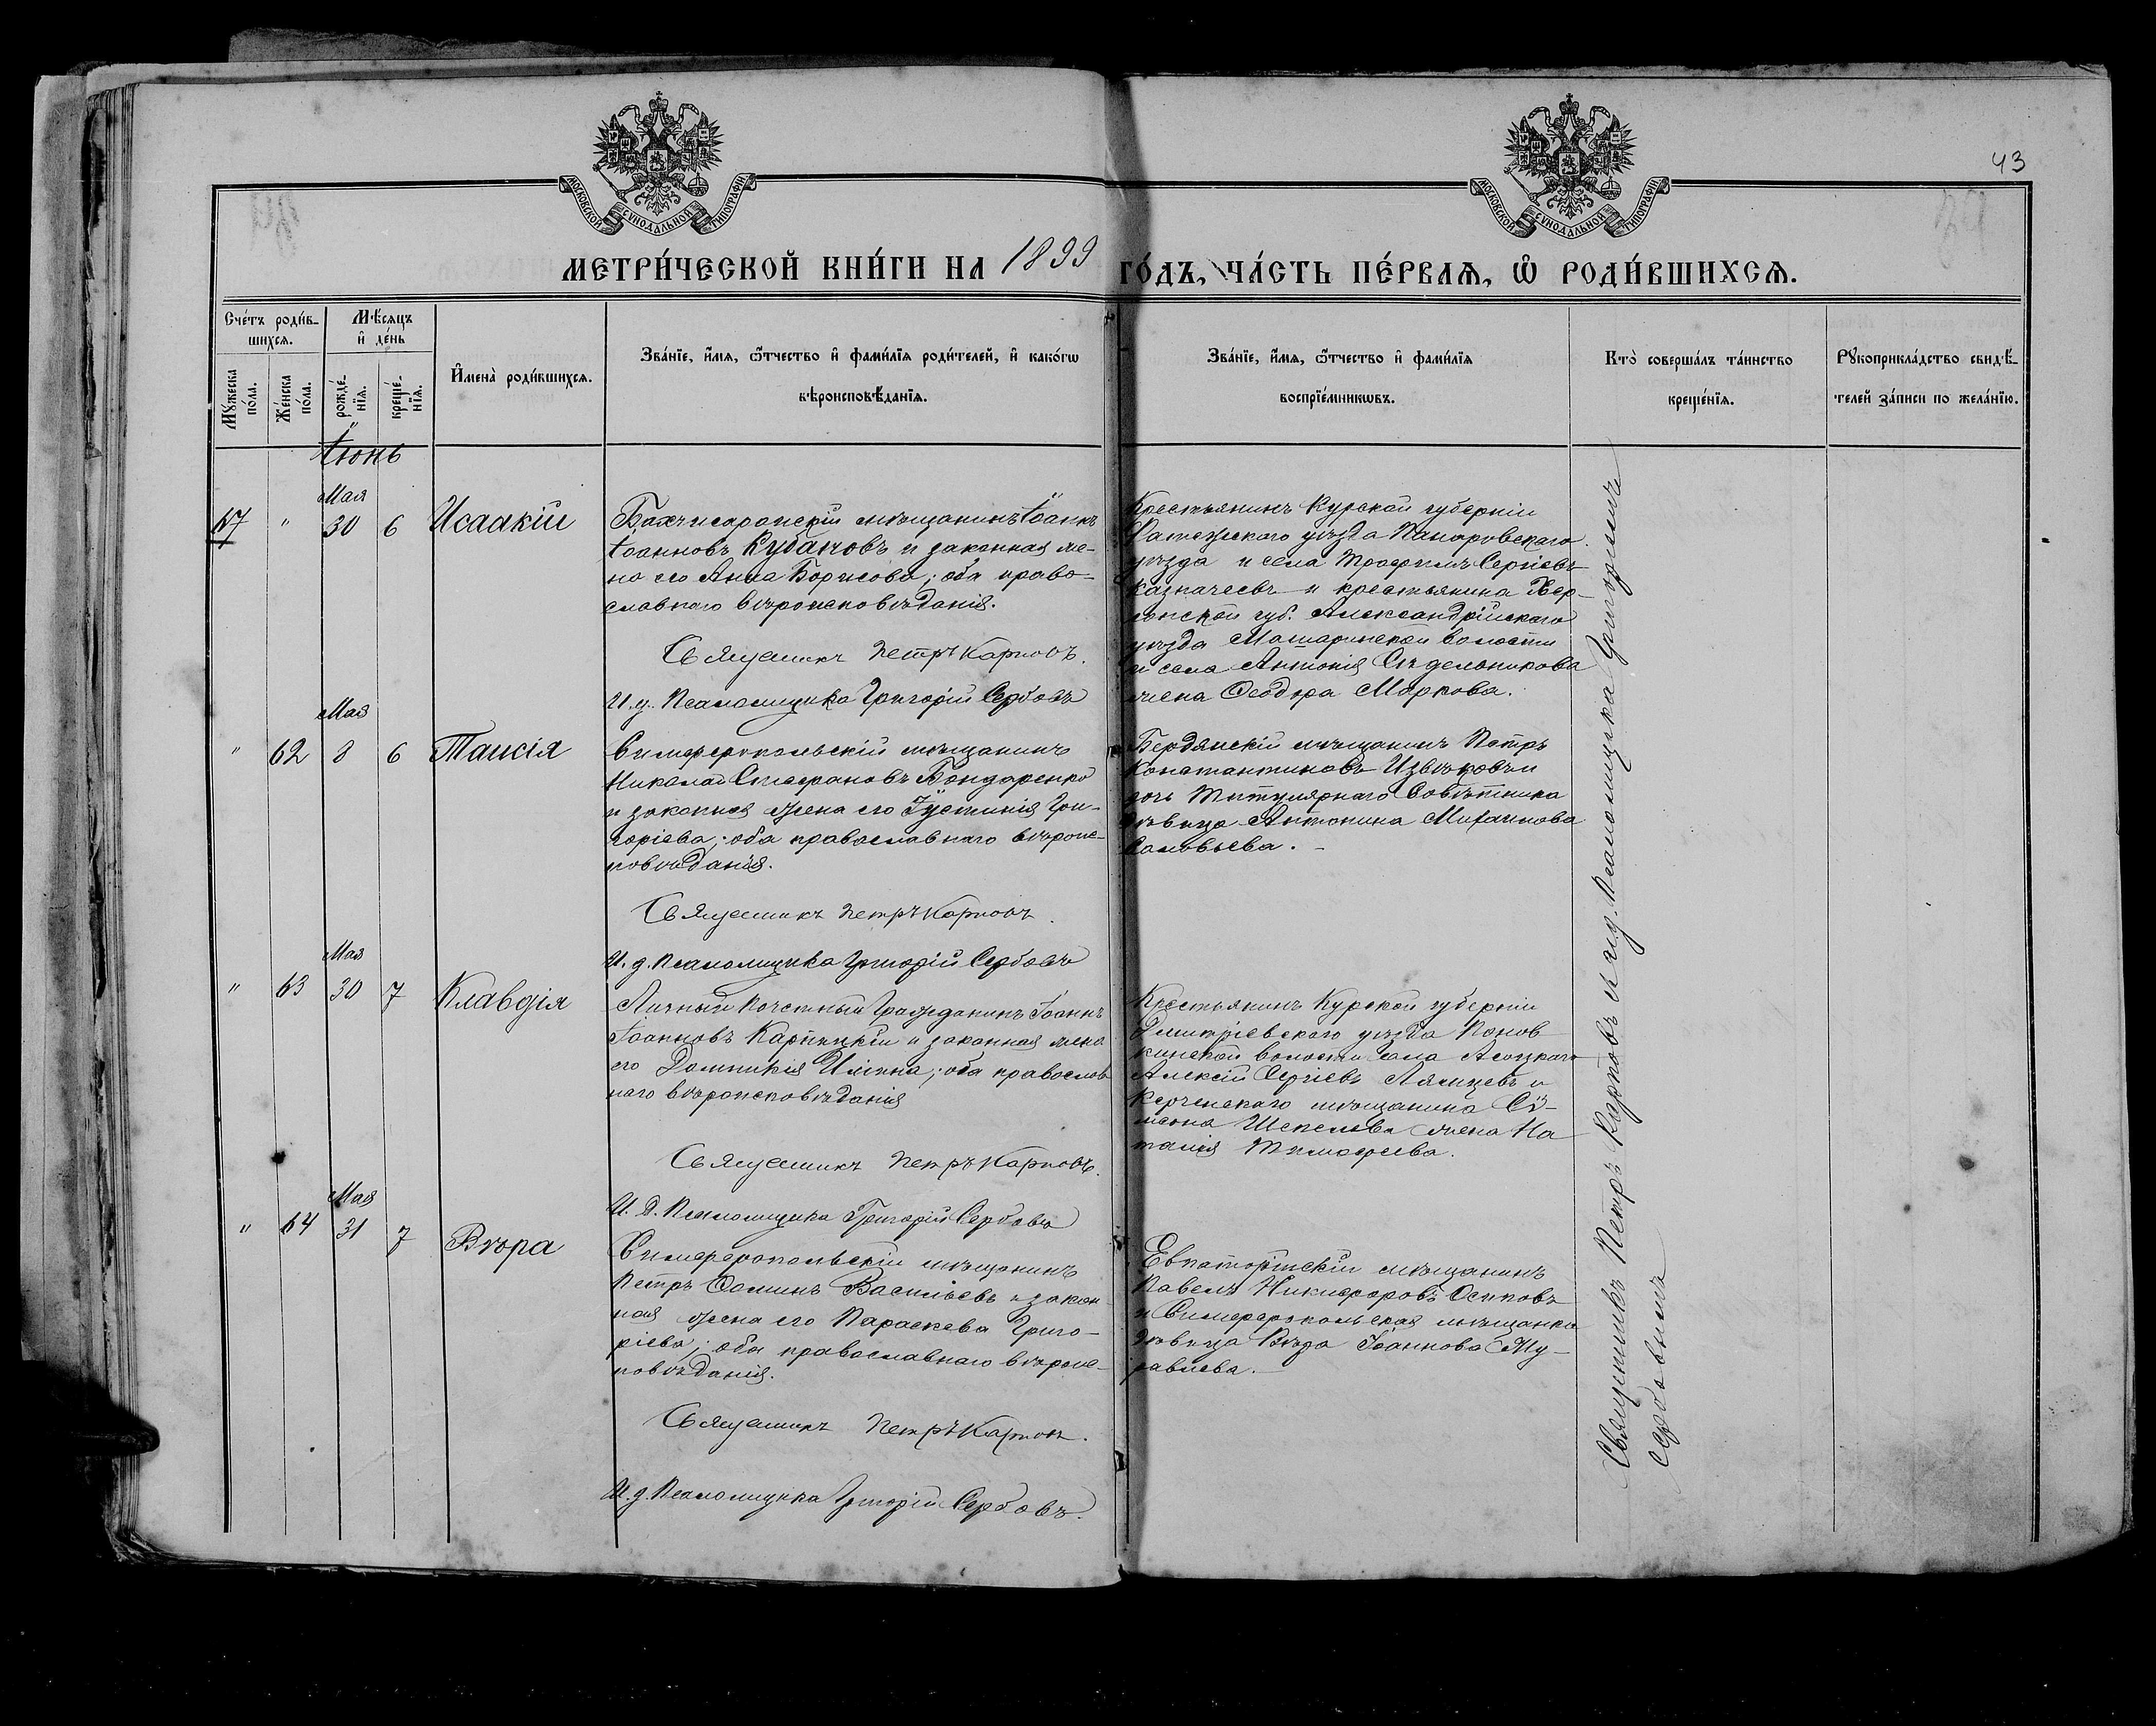 43
МОСКОВСКОЙ СѴНОДАЛЬНОЙ ТИПОГРАФІИ
МОСКОВСКОЙ СѴНОДАЛЬНОЙ ТИПОГРАФІИ
МЕТРИ́ЧЕСКОЙ КНИ́ГИ НА 1899 ГО́ДЪ, ЧА́СТЬ ПЕ́РВАѦ, Ѽ РОДИ́ВШИХСѦ.
Сче́тъ роди́в-
шихсѧ.
Мꙋжеска по́ла.
Же́нска по́ла.
Мѣ́сѧцъ
и҆ де́нь
рожде́-
нїѧ.
креще́-
нїѧ.
И҆мена̀ роди́вшихсѧ.
Зва́нїе, и҆́мѧ, ѻ҆́тчество и҆ фами́лїѧ роди́телей, и҆ како́гѡ
вѣроисповѣ́данїѧ.
Зва́нїе, и҆́мѧ, ѻ҆́тчество и҆ фами́лїѧ
воспрїе́мникѡвъ.
Кто̀ соверша́лъ та́инство
креще́нїѧ.
Рꙋкоприкла́дство свидѣ́-
телей за́писи по жела́нїю.
Іюнь
Мая
" 30 6 Исаакій
Бахчисарайскій мѣщанинъ Іоаннъ
Іоанновъ Кубановъ и законная же-
на его Анна Борисова; оба право-
славнаго вѣроисповѣданія.
Священникъ Петръ Карповъ.
И.д. Псаломщика Григорій Сербовъ
Крестьянинъ Курской губерніи
уѣзда
уѣзда и села Трофимъ Сергіевъ
Казначеевъ и крестьянина Хер-
сонской губ. Александрійскаго
уѣзда волости
и села Антонія Сѣдельникова
жена Ѳеодора Маркова.
Мая
" 62 8 6 Таисія
Симферопольскій мѣщанинъ
Николай Стефановъ Бондаренко
и законная жена его Іустинія Гри-
горіева; оба православнаго вѣроис-
повѣданія.
Священникъ Петръ Карповъ.
И.д. Псаломщика Григорій Сербовъ
Бердянскій мѣщанинъ Петръ
Константиновъ Извѣковъ и
дочь Титулярнаго Совѣтника
дѣвица Антонина Михаилова
Соловьева.
Мая
" 63 30 7 Клавдія
Личный Почетный Гражданинъ Іоаннъ
Іоанновъ Карпицкій и законная жена
его Домникія Ильина; оба православ
наго вѣроисповѣданія
Священникъ Петръ Карповъ.
И.д. Псаломщика Григорій Сербовъ
Крестьянинъ Курской губерніи
Дмитріевскаго уѣзда
волости села
Алексій Сергіевъ Лямцевъ и
Керченскаго мѣщанина Си-
меона Шепелева жена На
талія Тимофеева.
Мая
" 64 31 7 Вѣра
Симферопольскій мѣщанинъ
Петръ Ѳоминъ Васильевъ и закон
ная жена его Параскева Григо-
ріева; оба православнаго вѣроис-
повѣданія.
Священникъ Петръ Карповъ.
И.д. Псаломщика Григорій Сербовъ.
Евпаторійскій мѣщанинъ
Павелъ Никифоровъ Осиповъ
и Симферопольская мѣщанка
дѣвица Вѣра Іоаннова Му-
равлева.
Священникъ Петръ Карповъ и и.д. Псаломщика Григорій
Сербовымъ